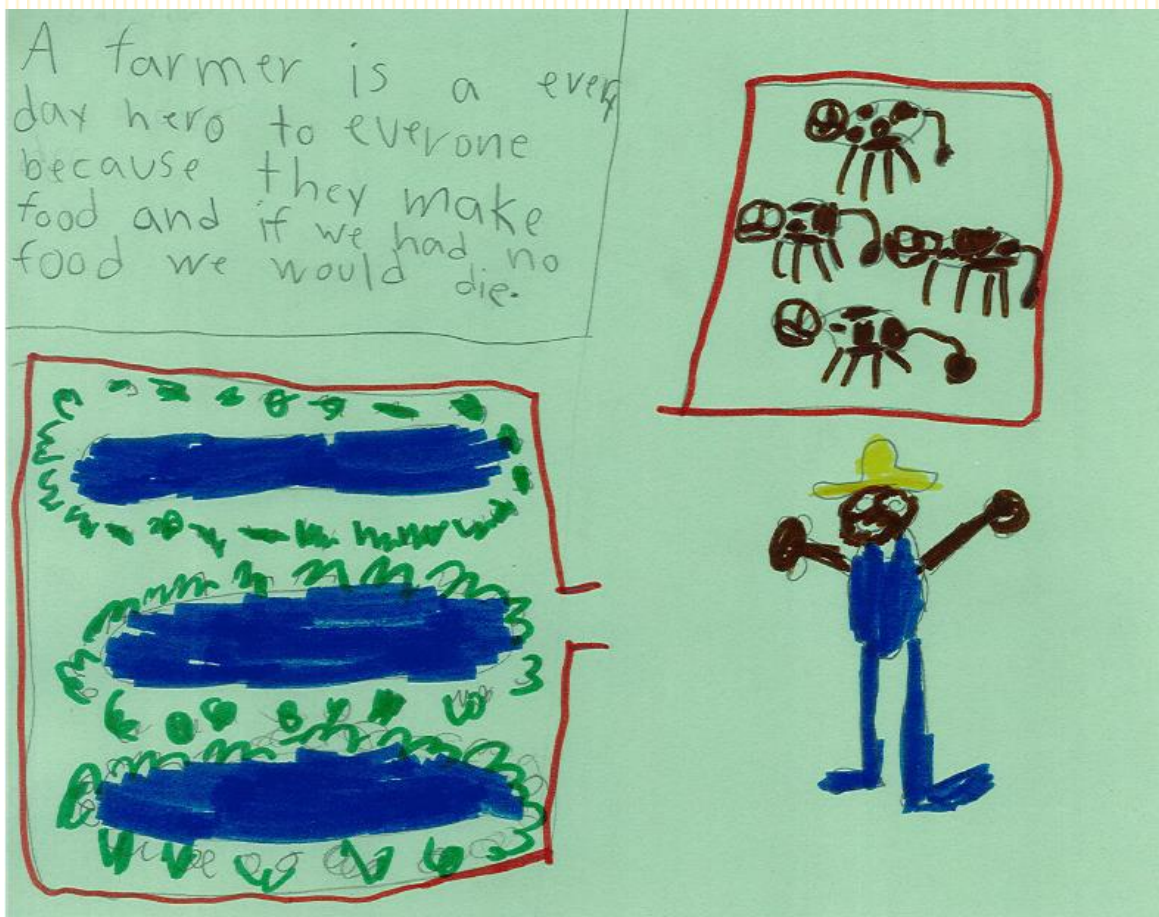 A farmer is a every
day hero to everone
because they make
food and if we had no
food we would die.